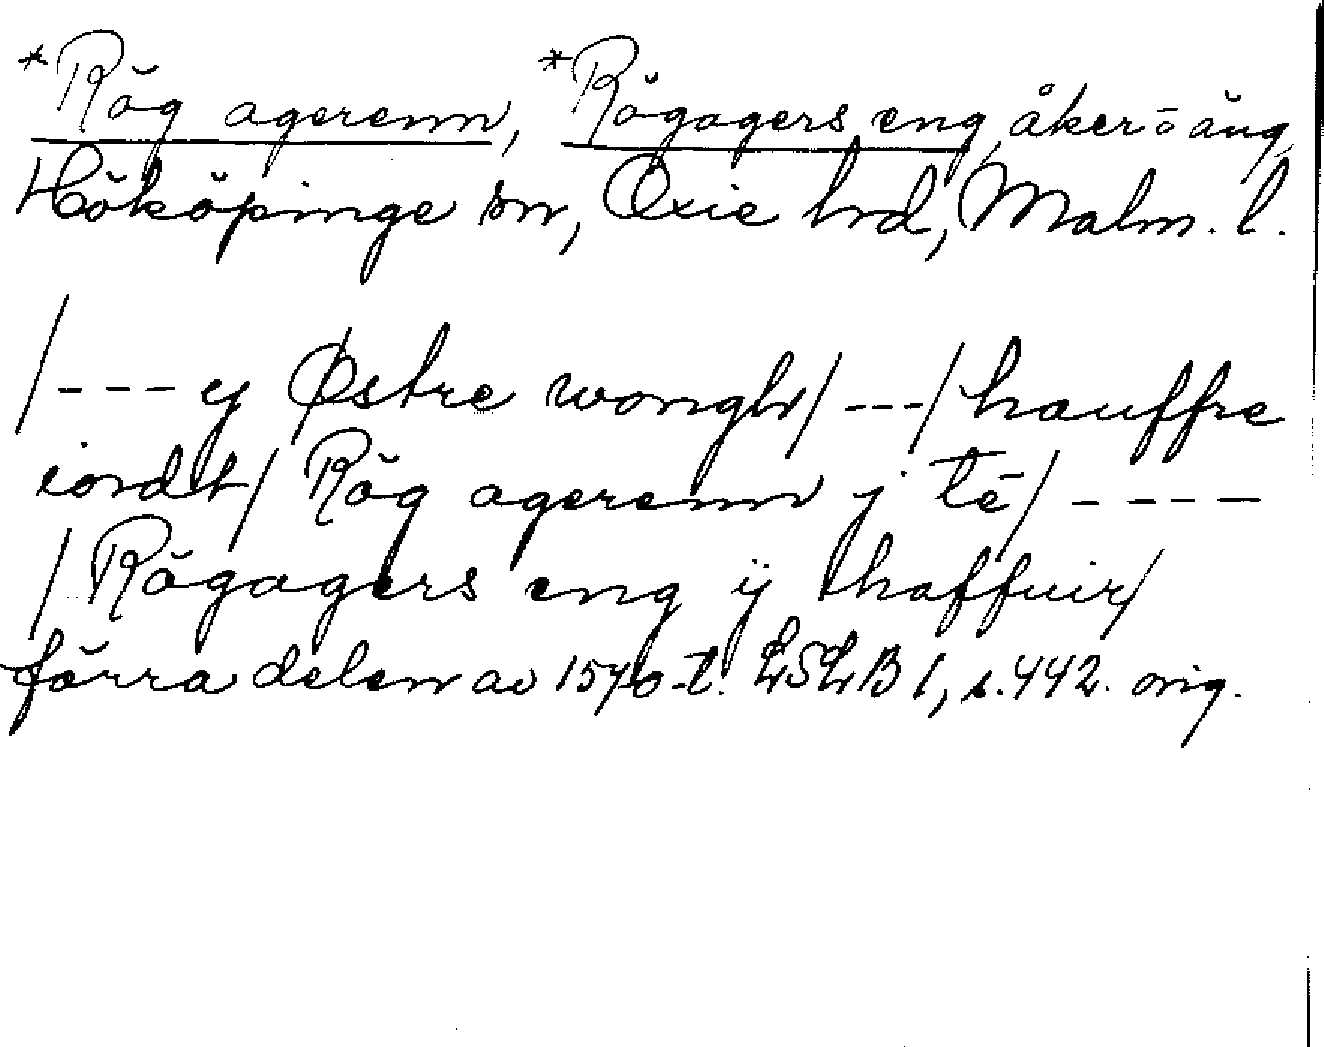 *Rŏg agerenn, *Rŏgagers eng, åker o äng,
Hököpinge sn, Oxie hrd, Malm. l.
/--- ej Østre wongh/ ---/ hauffre
iordt/ Rŏg agerenn j té/ ----
/ Rŏgagers eng ÿ haffuir/
förra delen av 1570-t. LSLB 1, s. 442. orig.